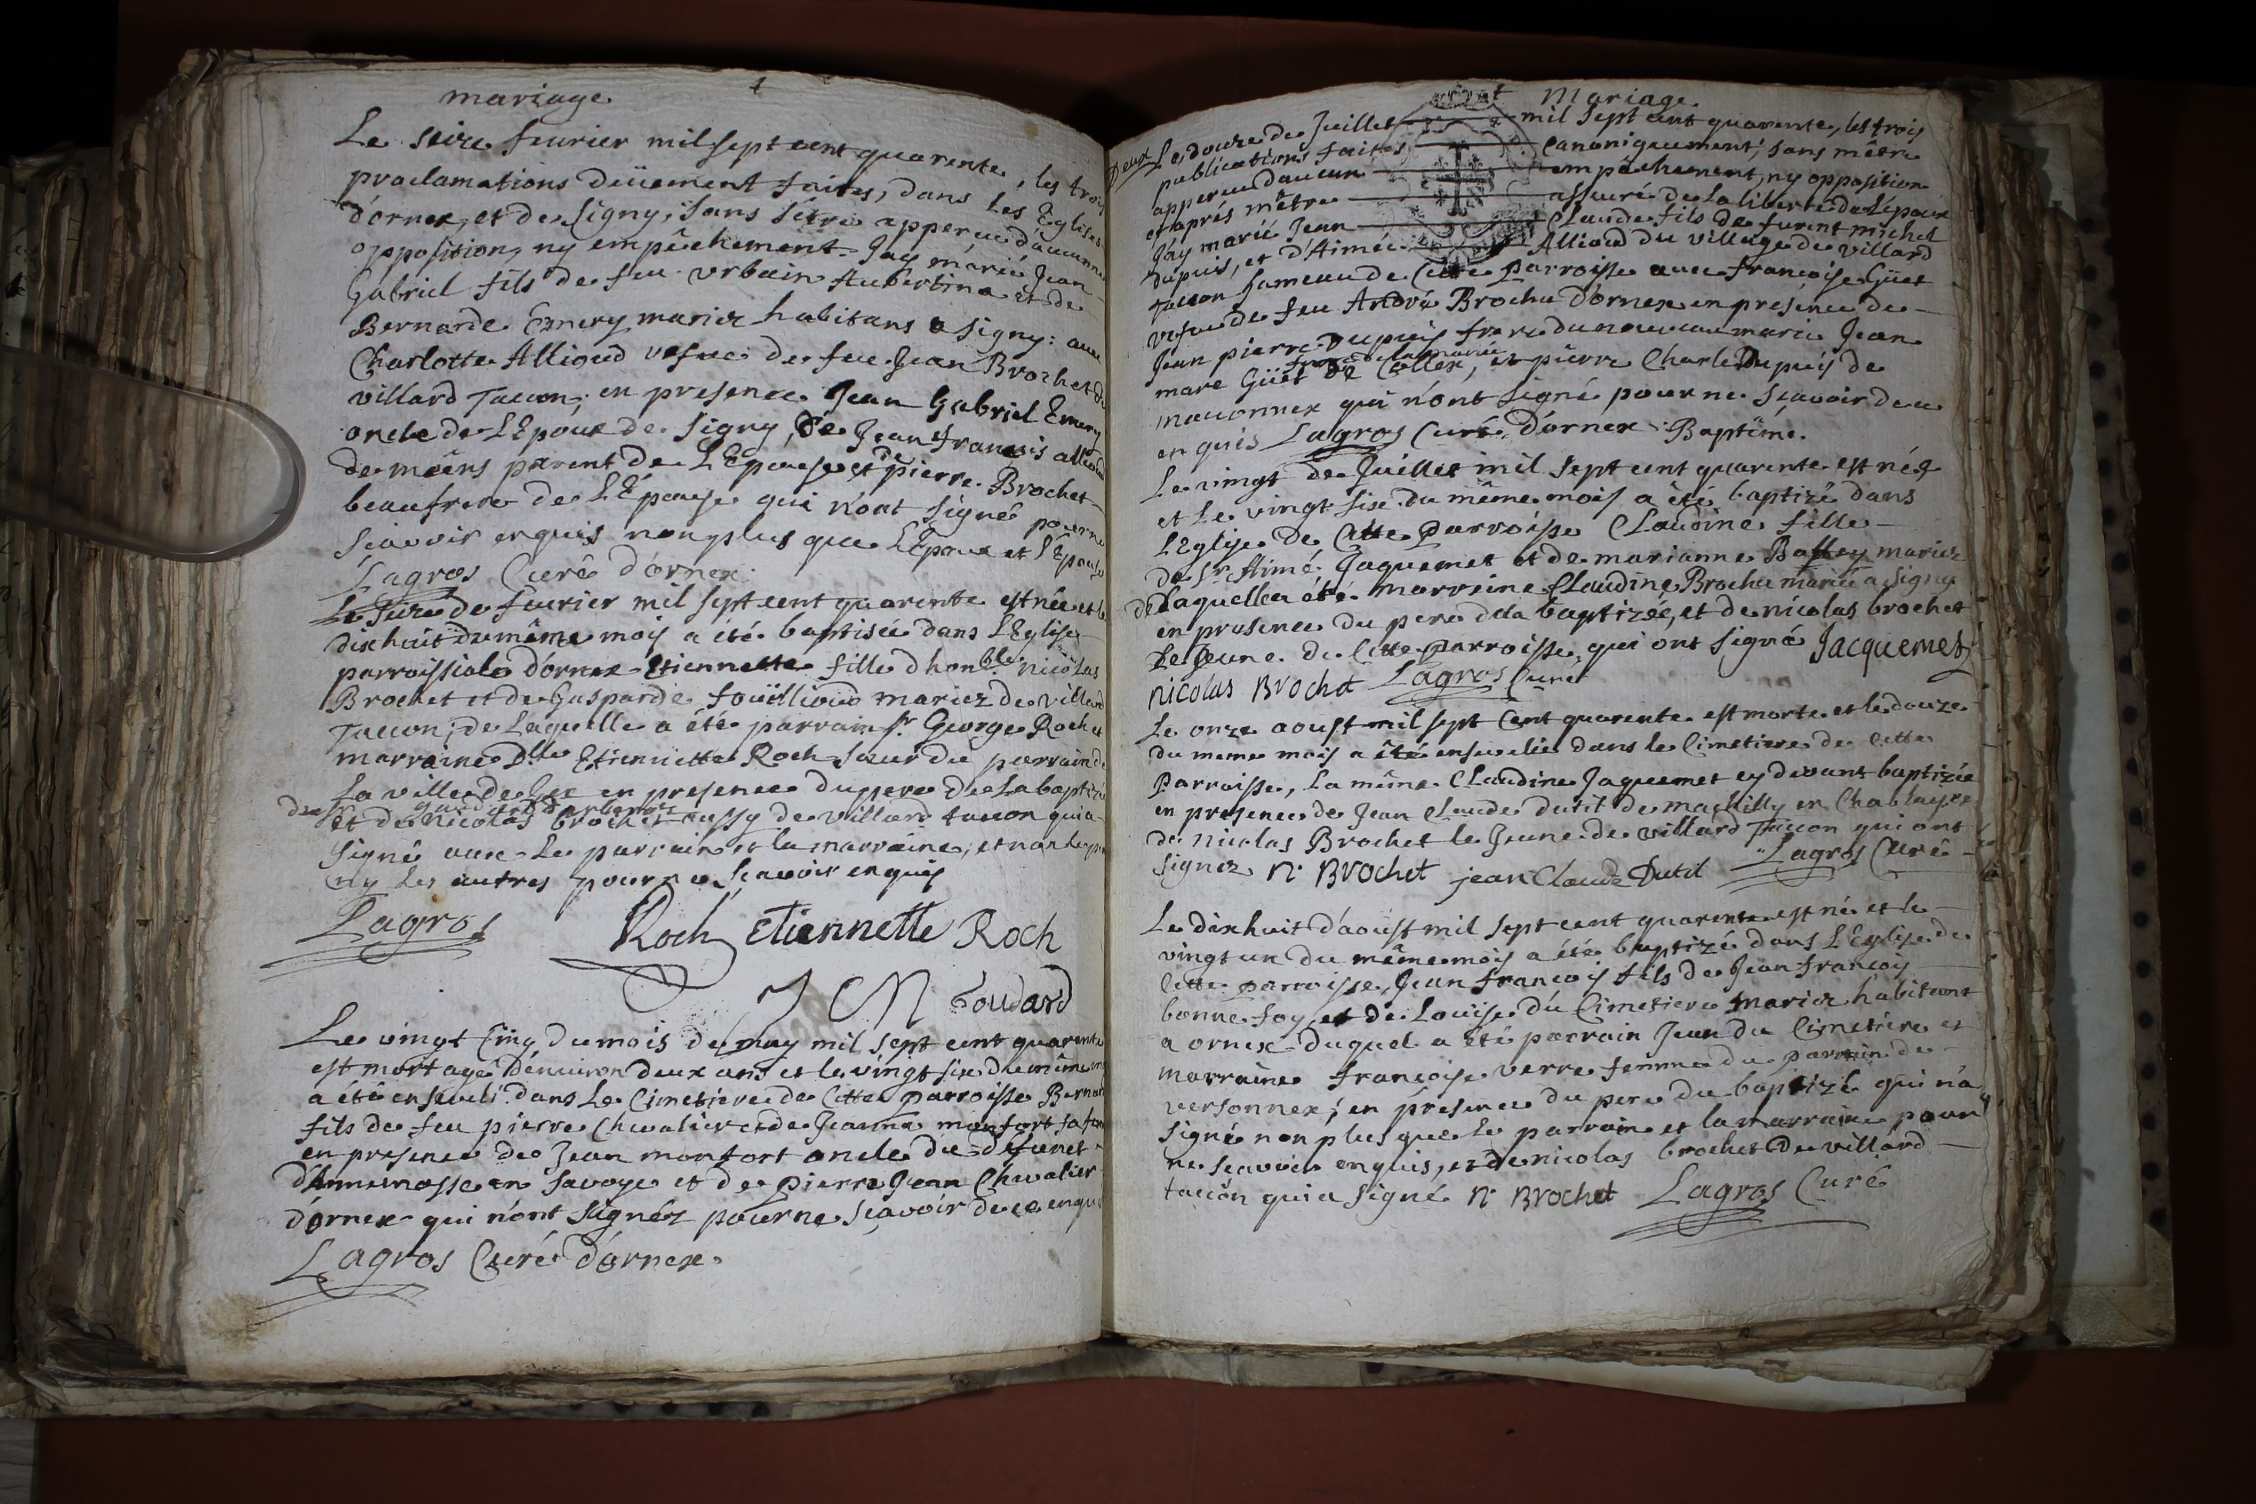 mariage
Le seize feurier mil sept cent quarente, les trois
proclamations düement faites, dans les Eglises
d'ornex, et de Signy, sans sêtre apperçu d'aucunne
opposition, ny empêchement. Jay marié Jean
Gabriel fils de feu Urbain Aubertina et de
Bernarde Emery mariez habitans a Signy: auec
Charlotte Alligud vefue de feu Jean Brochet du
villard Taccon; en presence Jean Gabriel Emery
oncle de L'Epoux de Signy, de Jean francois
de moëns parent de L'Epouse et de pierre Brochet
beaufrere de L'Epouse qui n'ont signé pour ne
sçavoir enquis non plus que L'Epoux et L'Epouse
Lagros Curé d'ornex.
Le de feurier mil sept cent quarente est née et le
dixhuit du même mois a été baptisée dans L'Eglise
parroissiale d'ornex Etiennette fille d'honble. nicolas
Brochet et de Gasparde foüillioud mariez de villard
Taccon; de Laquelle a été parrain sr. George Roch et
marraine Dlle Etiennette Roch sœur du parrain de
La ville de Gex en presence du pere de La baptizée
et de nicolas brochet aussy de villard taccon qui a
signé auec le parrain et la marraine, et non le
ny les autres pour ne sçavoir enquis
Lagros Roch Etiennette Roch
J C M Foudard
Le vingt cinq du mois de may mil sept cent quarente
est mort agé d'enuiron deux ans et le vingt six du même mois
a été enseveli dans Le Cimetiere de Cette parroisse Bernard
fils de feu pierre Chevalier et de Jeanne monfort sa fem
en presence de Jean monfort oncle du defunct
d'Annemasse en Savoye et de pierre Jean Chevalier
d'ornex qui n'ont signéz pour ne sçavoir de ce enquis
Lagros Curé d'ornex.
Mariage.
Le douze de Juillet mil sept cent quarente, les trois
publications faites canoniquement, sans m'être
apperçu d'aucun empêchement, ny opposition
et aprés m'être assuré de la liberté de L'époux
J'ay marié Jean Claude fils de furent michel
dupuis, et d'Aimée Alliod du village de villard
taccon hameau de Cette parroisse auec francoise Güet
vefue de feu André Brochu d'ornex en presence de
Jean pierre Dupuis frere du nouueau marié Jean
frere de la mariée
marc Güet de Collex, et pierre Charle Dupuis de
maconnex qui n'ont signé pour ne sçavoir de ce
enquis Lagros Curé d'ornex Baptême.
Le vingt de Juillet mil sept cent quarente est née
et Le vingt six du même mois a été baptizé dans
L'Eglise de Cette parroisse Claudine fille
de Sr. Aimé Jaquemet et de marianne mariez
de Laquelle a été marreine Claudine Brochu mariée a Signy
en presence du pere de la baptizée, et de nicolas brochet
Le Jeune de Cette parroisse qui ont signé Jacquemet
nicolas Brochet Lagros Curé
Le onze aoust mil sept Cent quarente est morte et le douze
du meme mois a été enseuelie dans le Cimetiere de cette
Parroisse, La même Claudine Jaquemet cy devant baptizée
en presence de Jean Claude Dutil de machilly en Chablays et
de nicolas Brochet le Jeune de villard Taccon qui ont
signez N. Brochet jean Claude Dutil Lagros Curé
Le dixhuit d'aoust mil sept cent quarente est né et le
vingt un du même mois a été baptizé dans L'Eglise de
Cette parroisse, Jean francois fils de Jean francois
bonne foy, et de Louise du Cimetiere mariez habitant
a ornex duquel a été parrain Jean du Cimetiere et
marraine francoise verre femme du parrain de
versonnex; en presence du pere du baptizé qui n'a
signé non plus que Le parrain et la marraine pour
ne sçavoir enquis, et de nicolas brochet de villard
taccon qui a signé N. Brochet Lagros Curé